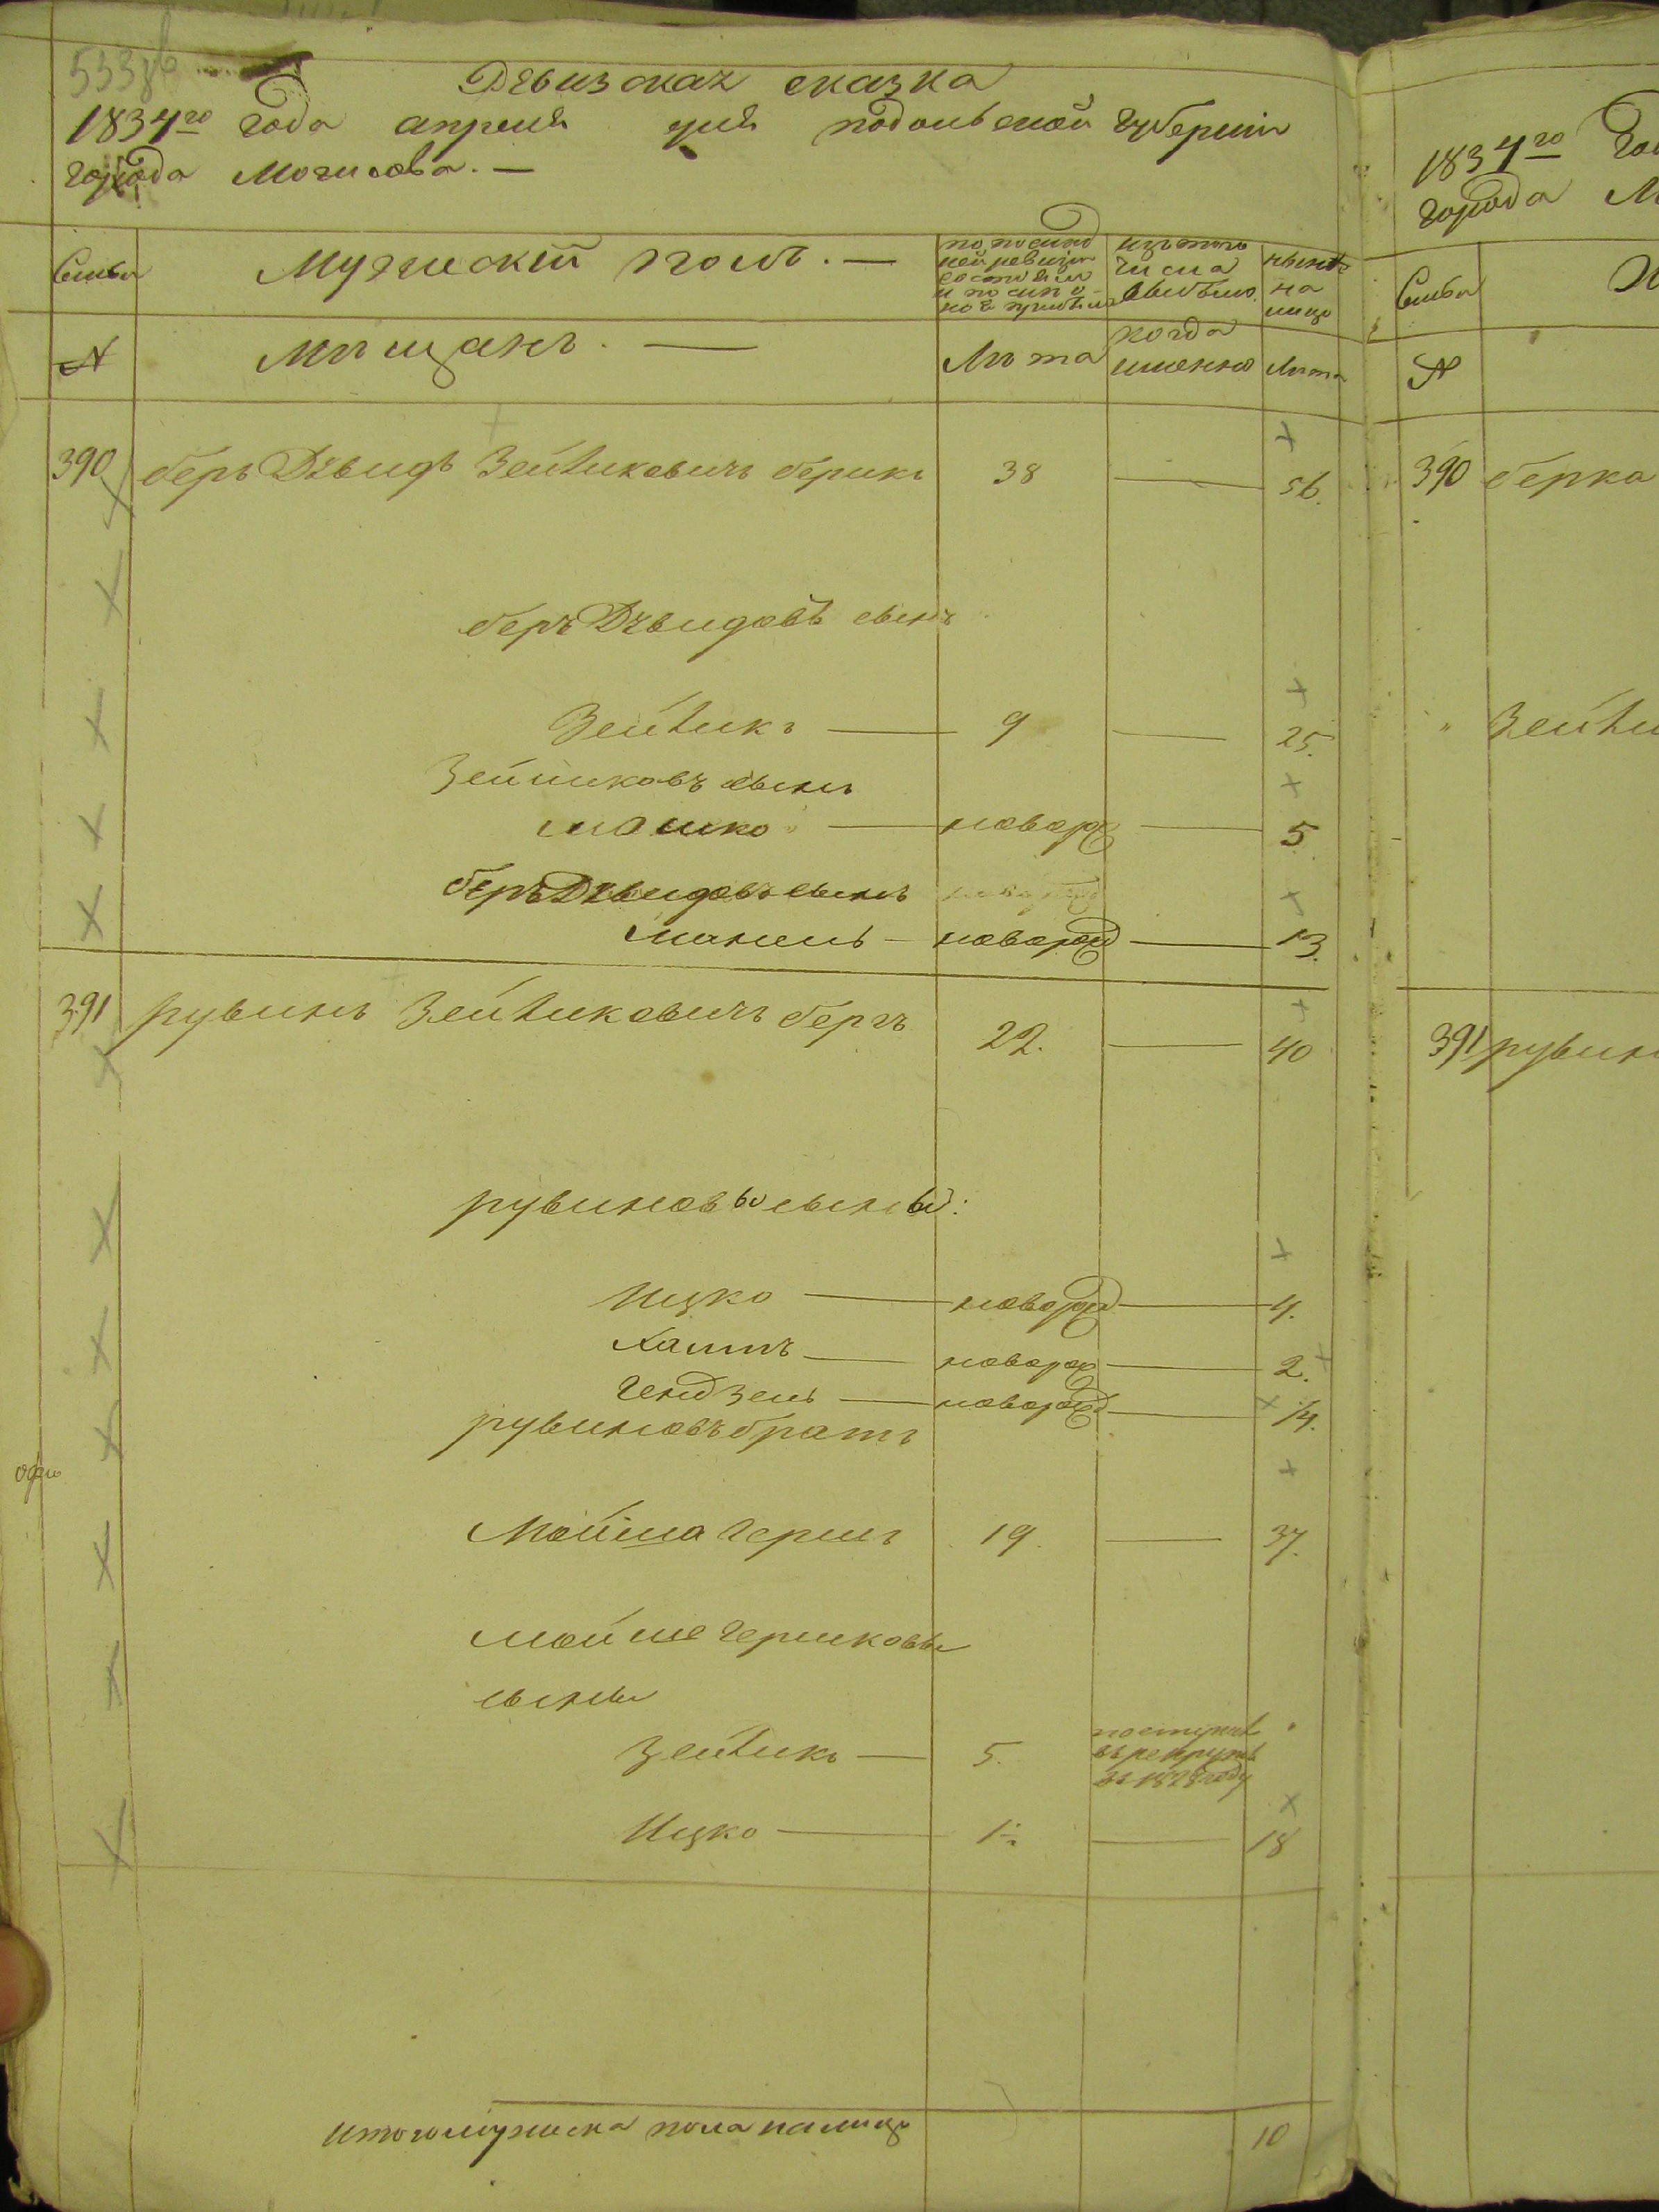 533об
Ревизская сказка
1834го года апреля дня подольской губернии
города Могилова. —
Семьи
Мужеский полъ. —
по послед
ней ревизіи
состояло
и после о
ной прибыло
изъ того
числа
выбыло
ныне
на
лицо
№
Мѣщанъ. —
Лѣта
когда
именно
Лѣта
390 беръ Двыидъ Зейликовичъ берикъ 38 — 56.
беръ Двыидовъ сынъ
Зейликъ — 9 — 25.
Зейликовъ сынъ
мошко — новорж — 5
беръ Двыидовъ сынъ
Манель — новорожд — 13.
391 рувинъ Зейликовичъ бергъ 22. — 40
рувиновы сыны:
Ицко — новорожд — 4.
Хаимъ — новорож — 2.
гендзель — новорожд — 14.
рувиновъ братъ
Мойша Гершъ 19. — 37.
мойше гершковы
сыны
Зейликъ — 5. поступилъ
въ рекруты
въ 1828 году
Ицко — 1½ — 18
итого мужеска пола налицо 10
1834го Го
города М
Семьи
№
390 берка
" Зейли
391 рувин